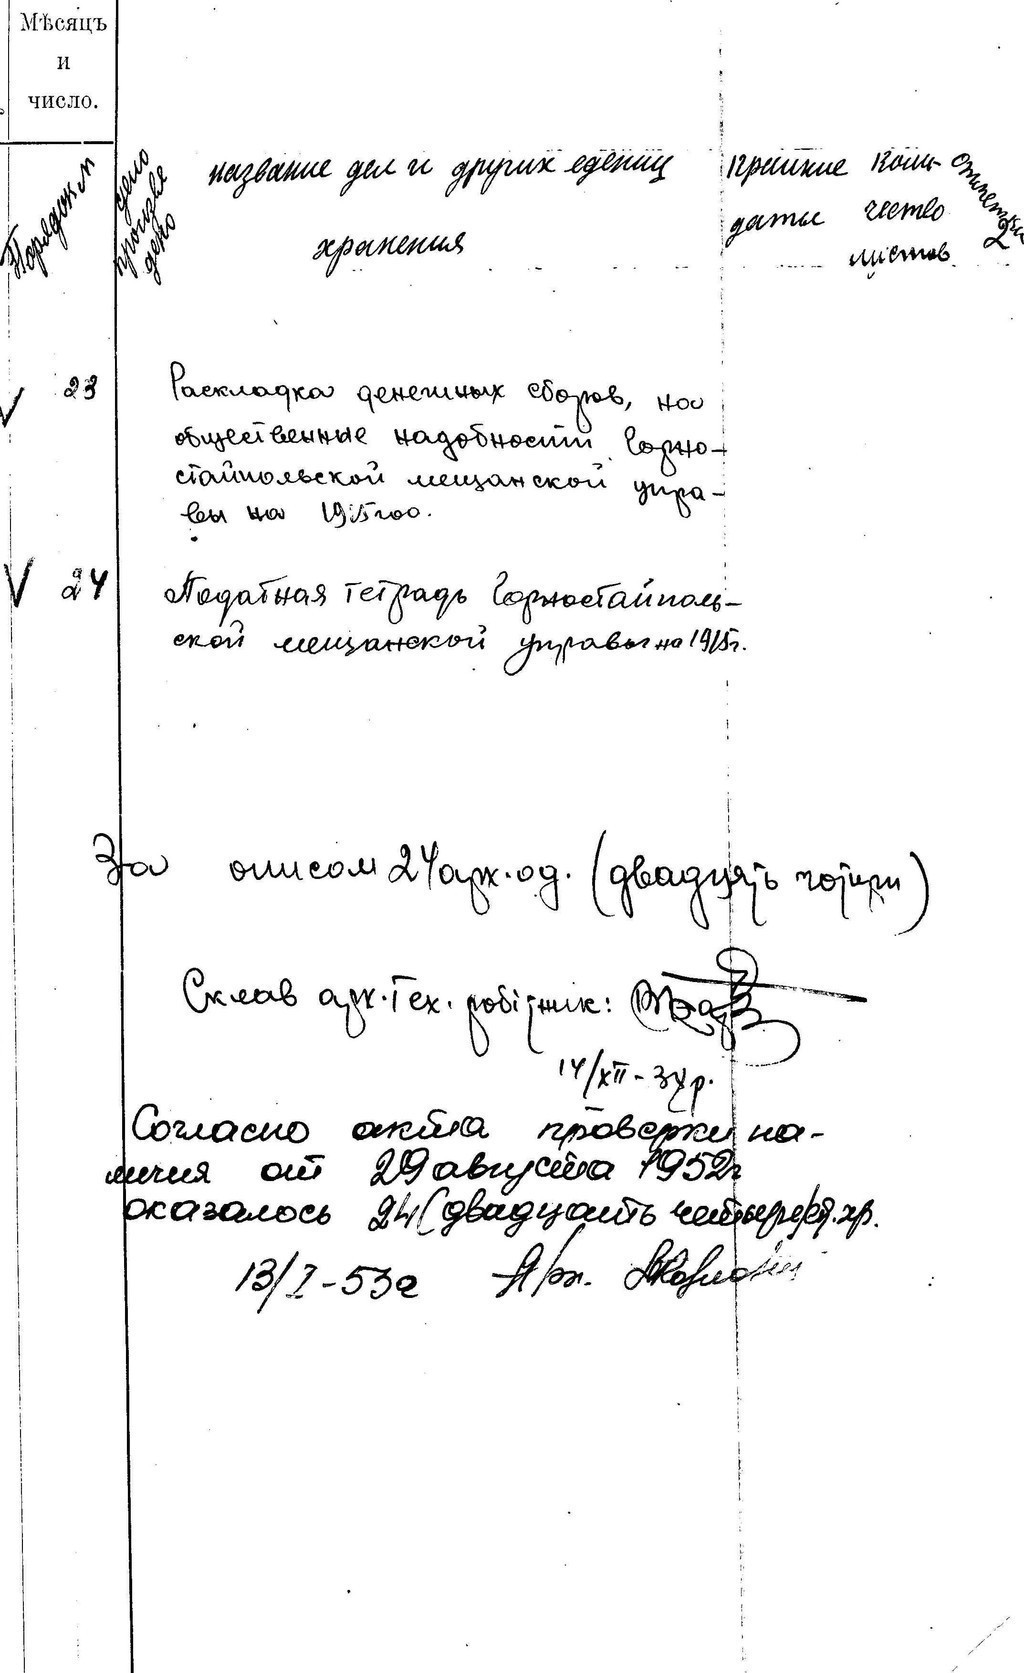 Мѣсяцъ
и
число.
Порядок №
дело
произве
дено
название дел и других едениц
хранения
крайние
даты
коли-
чество
листов
отметки
2
23 Раскладка денежных сборов, на
общественные надобности Горно-
стайпольской мещанской упра-
вы на 1915 год.
V 24 Податная тетрадь Горностайполь-
ской мещанской управы на 1915г.
За описом 24 арх. од. (двадцять чотири)
Склав арх. тех. робітник:
14/XII-
Согласно акта проверки на-
личия от 29 августа 1952г
оказалось 24 (двадцать четыре) ед. хр.
13/I-53г Арх.